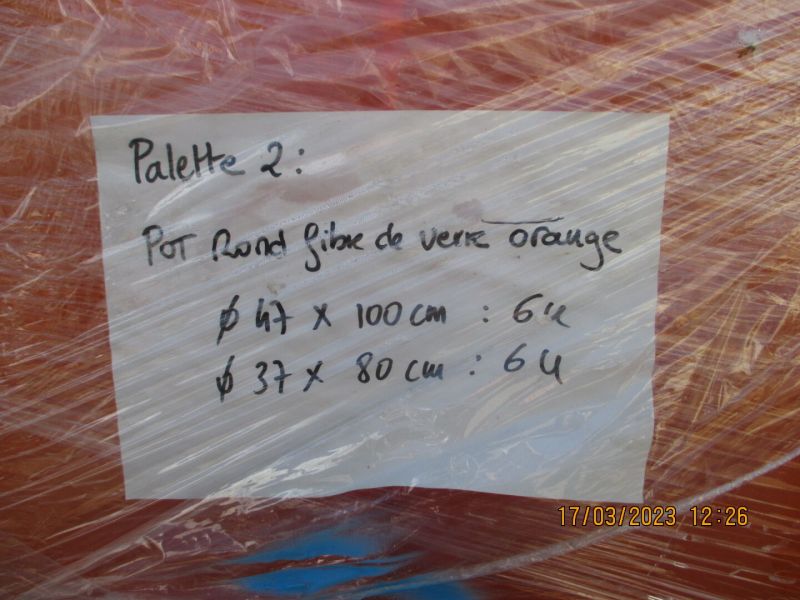 Palette 2:
Pot Rond fibre de verre orange
ø 47 x 100 cm : 6 u
ø 37 x 80 cm : 6 u
17/03/2023 12:26